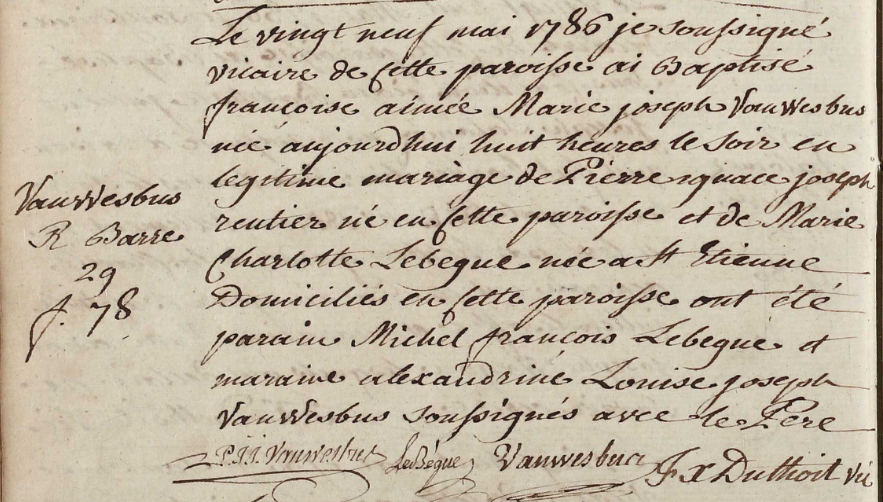 Le vingt neuf mai 1786 je soussigné
vicaire de cette paroisse ai Baptisé
francoise aimée Marie joseph Vanwesbus
née aujourdhui huit heures le soir en
legitime mariage de Pierre ignace joseph
rentier né en cette paroisse et de Marie
Charlotte Lebegue née a St Etienne
Domiciliés en cette paroisse ont été
parain Michel françois Lebegue et
maraine alexandrine Louise joseph
Vanwesbus soussignés avec le Pere
Vanwesbus
R Barre
29
f. 78
P.I.J. Vanwesbus LeBégue Vanwesbus F x Duthoit vic